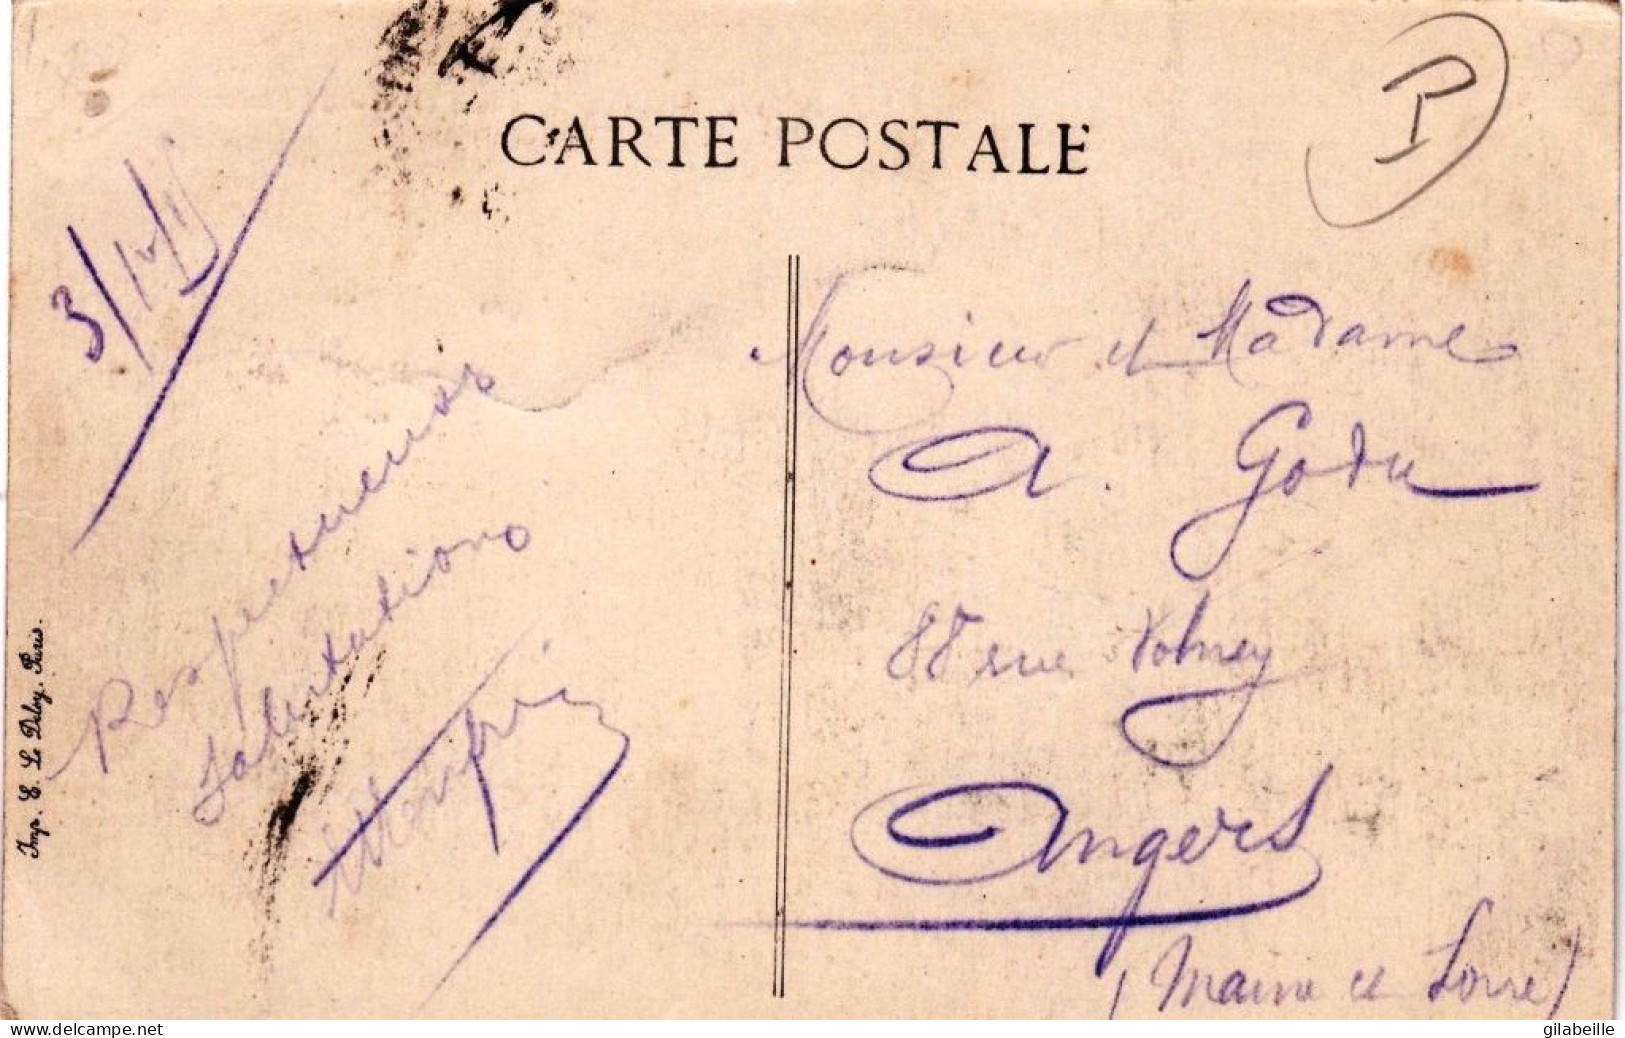 CARTE POSTALE
P
Respectueuses
salutations
Monsieur et Madame
A. Godu
88 rue Volney
Angers
(Maine et Loire)
Imp. E. Le Deley. Paris.
www.delcampe.net
gilabeille